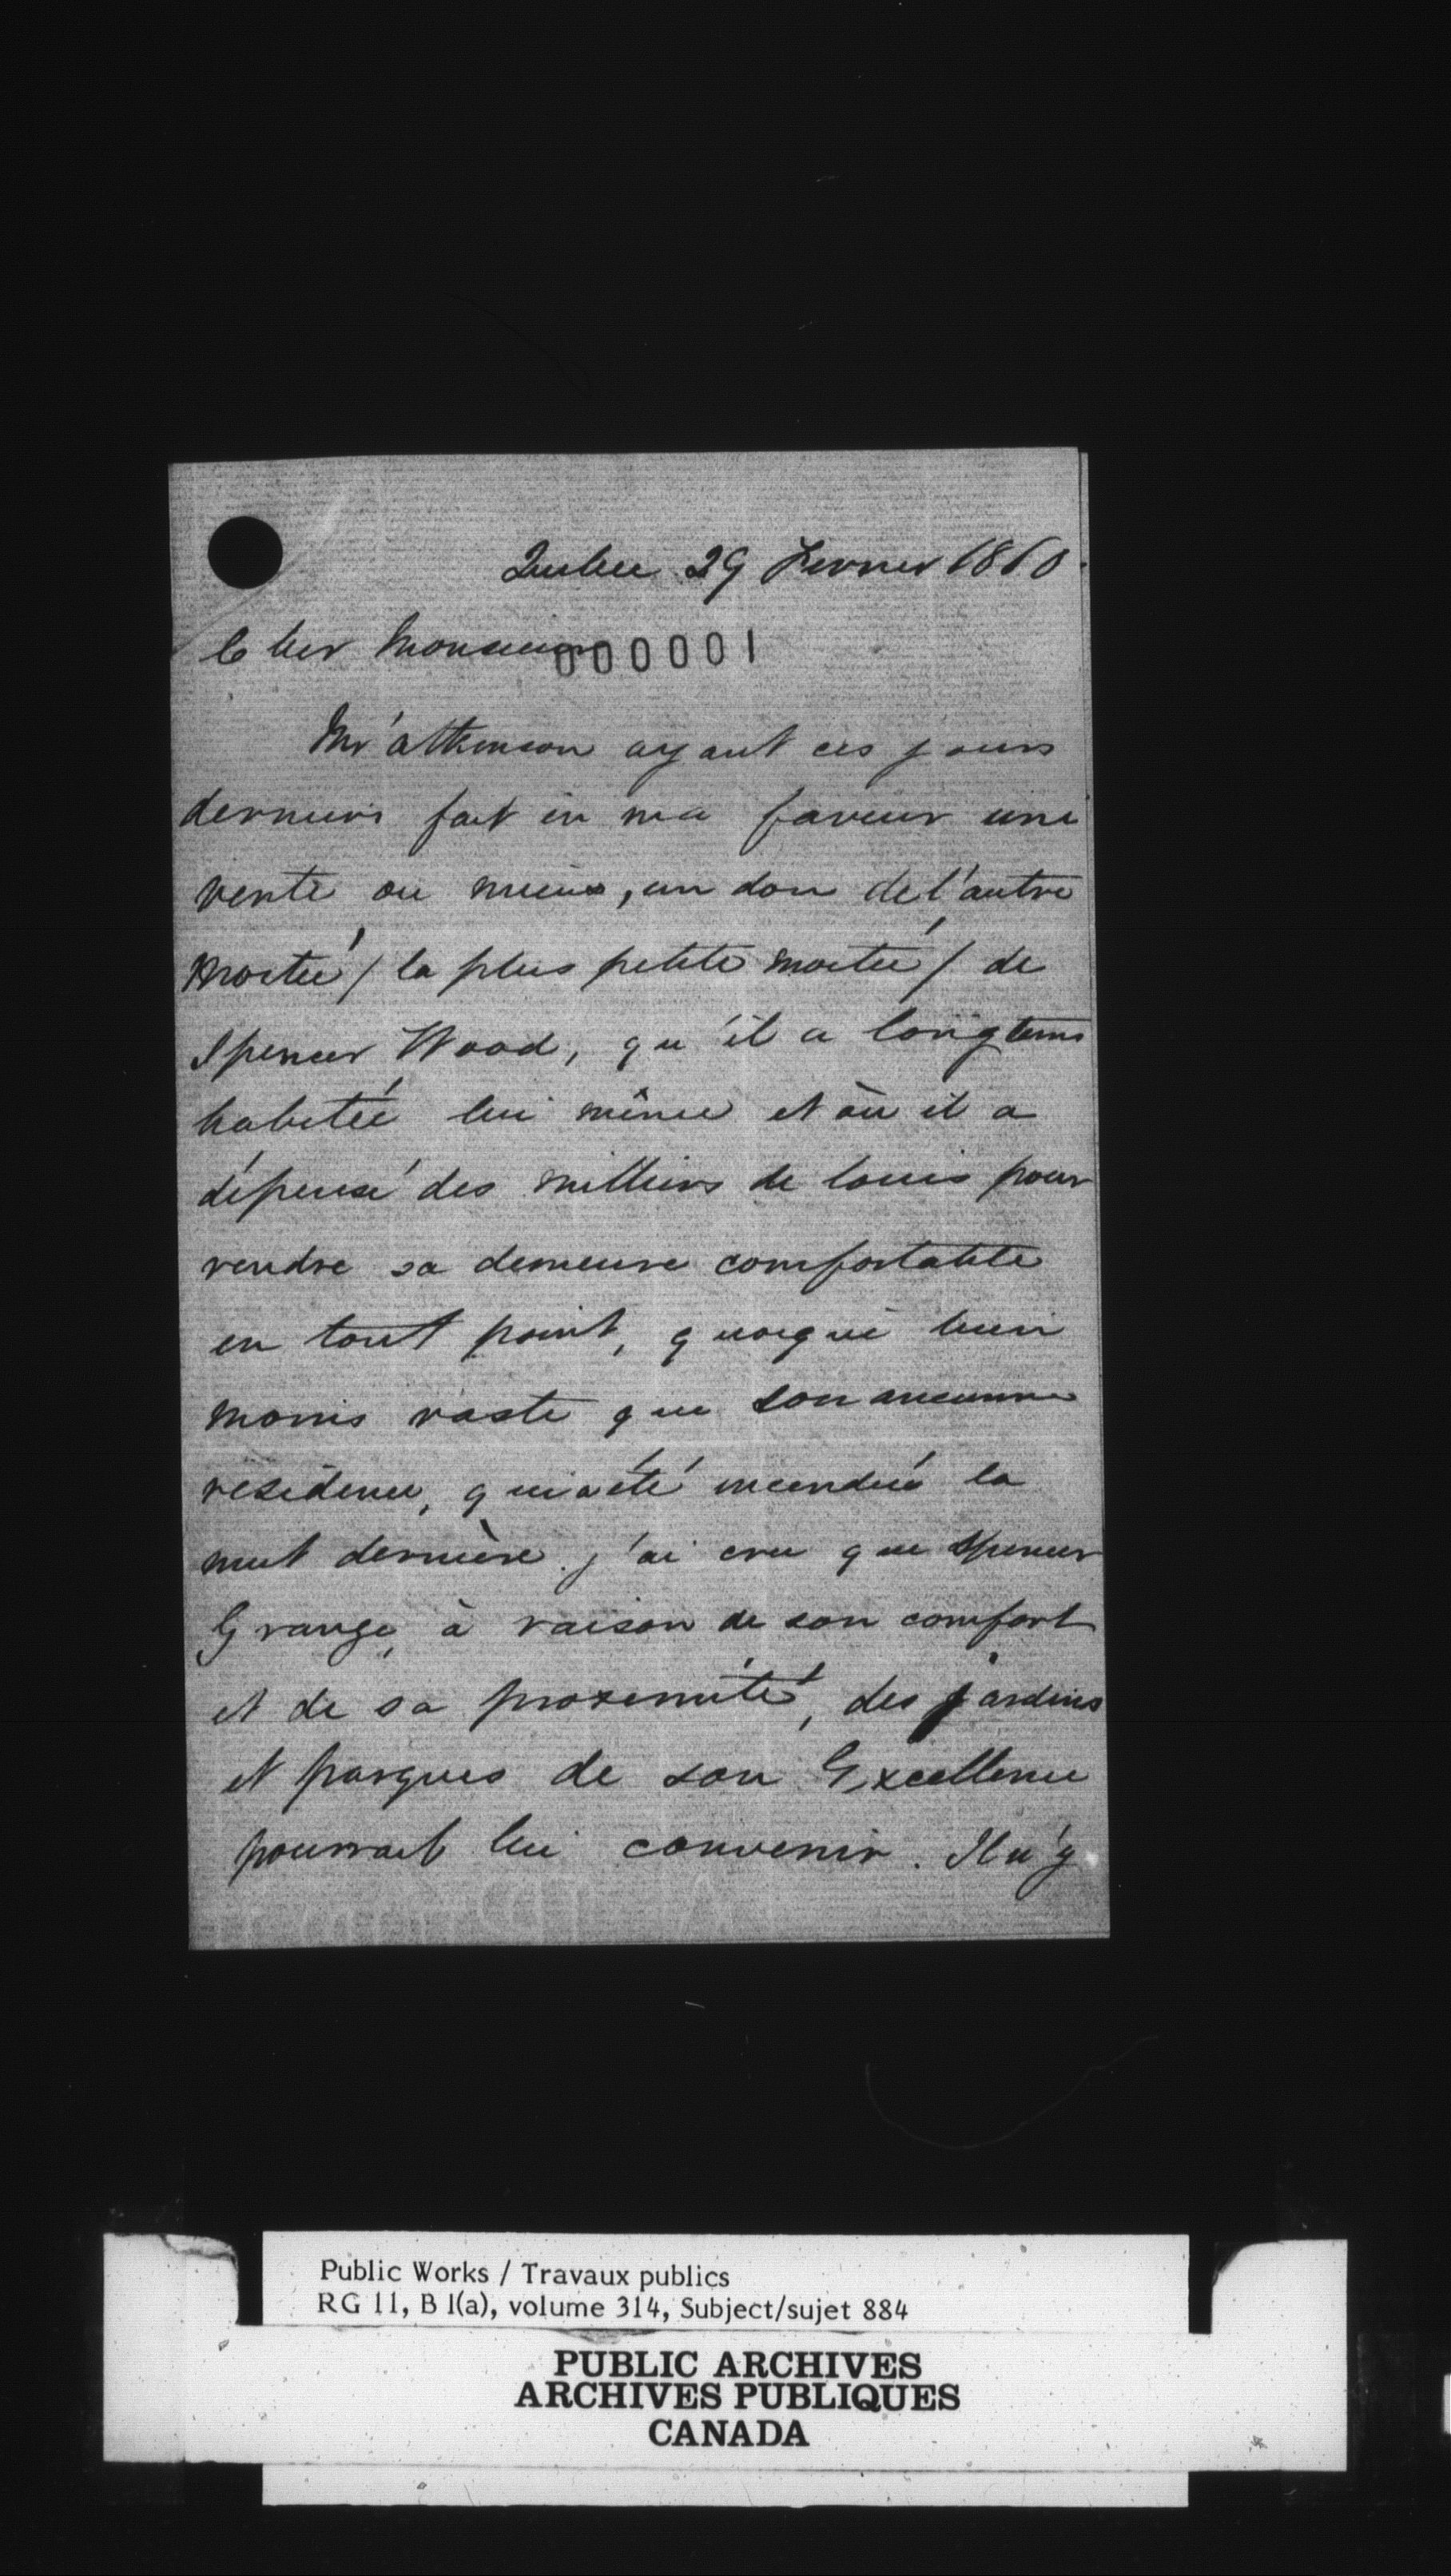 Quebec 29 Fevrier 1860.
Cher Monsieur
000001
Mr Atkinson ayant ces jours
derniers fait en ma faveur une
vente ou mieux, un don de l'autre
moitié / la plus petite moitié / de
Spencer Wood, qu'il a longtems
habitée lui même et où il a
dépensé des milliers de louis pour
rendre sa demeure comfortable
en tout point, quoique bien
moins vaste que son ancienne
residence, qui a été incendiée la
nuit dernière. j'ai cru que Spencer
Grange, à raison de son comfort
et de sa proximité, des jardins
et parques de son Excellence
pourrait lui convenir. Il n'y
Public Works / Travaux publics
RG 11, B 1(a), volume 314, Subject/sujet 884
PUBLIC ARCHIVES
ARCHIVES PUBLIQUES
CANADA